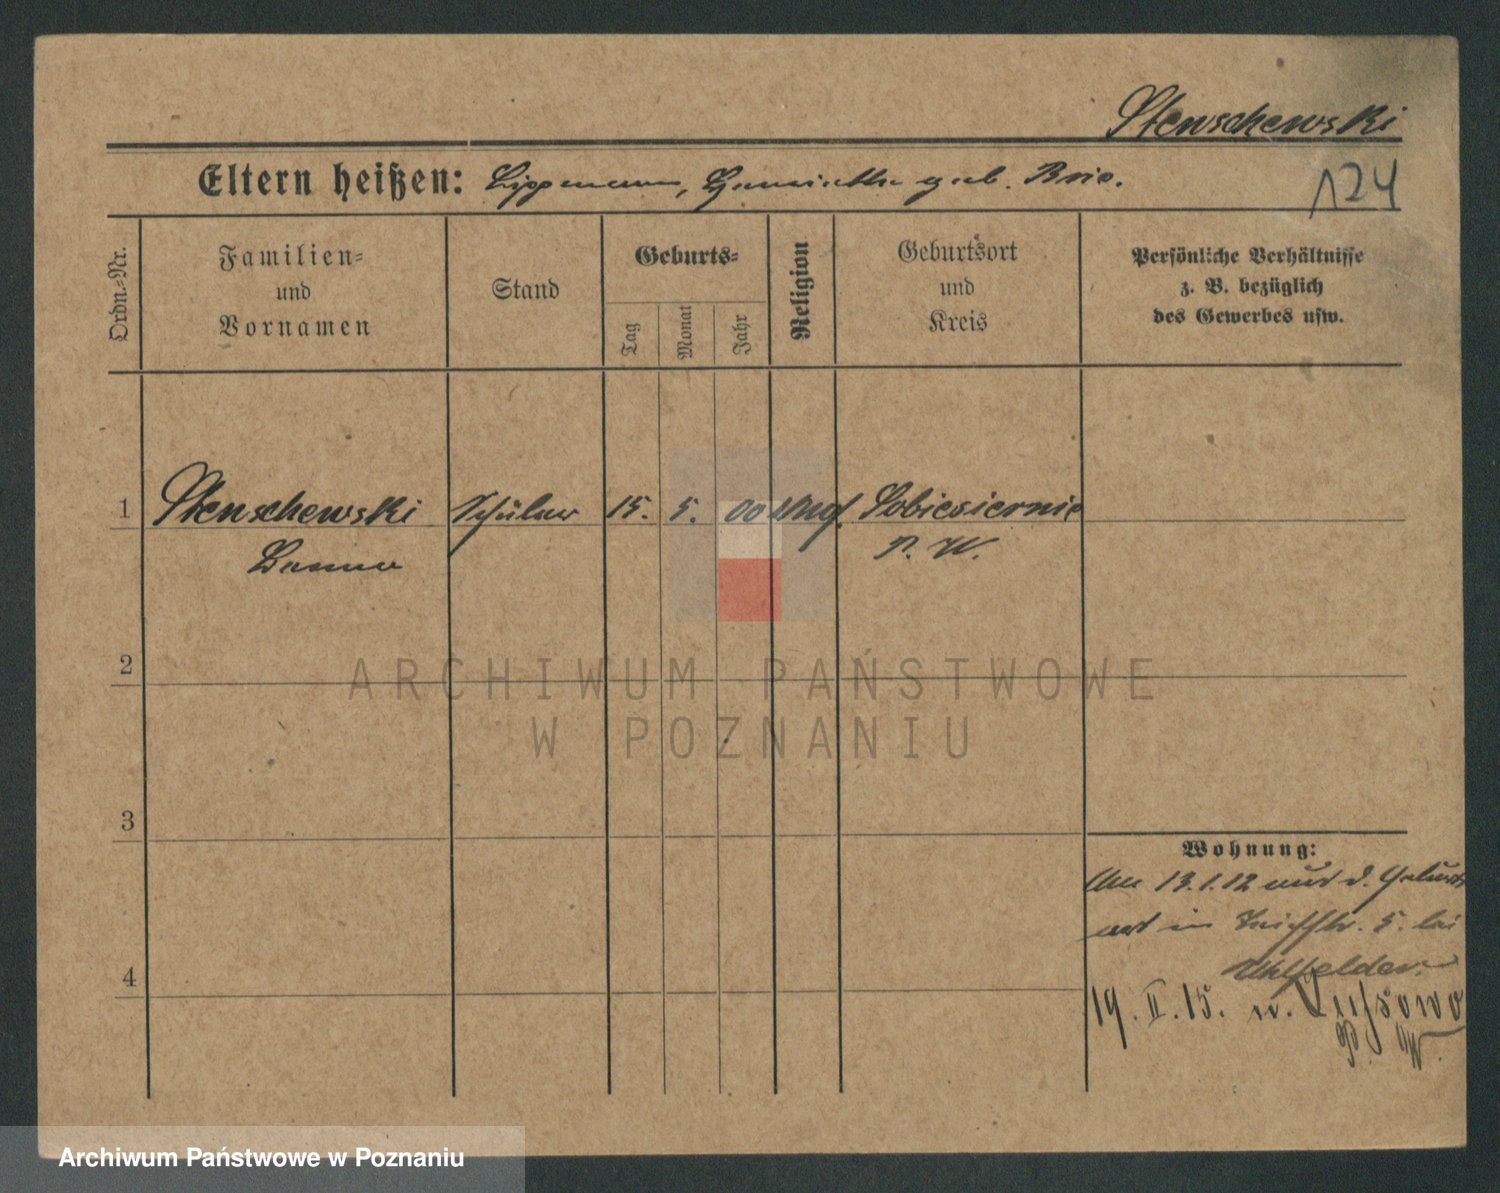 Stenschewski
Eltern heißen: Lippmann, Henriette geb. Brie.
124
Ordn.=Nr.
Familien=
und
Vornamen
Stand
Geburts=
Tag
Monat
Jahr
Religion
Geburtsort
und
Kreis
Persönliche Verhältnisse
z. B. bezüglich
des Gewerbes usw.
1 Stenschewski Schüler 15. 5. 00 Sobiesiernie
P. W.
2
3
4
Wohnung:
Am 13.1.12 aus d. Geburts
ort in 5. bei
19. II. 15. n. Lussowo
P. W.
ARCHIWUM PAŃSTWOWE
W POZNANIU
Archiwum Państwowe w Poznaniu